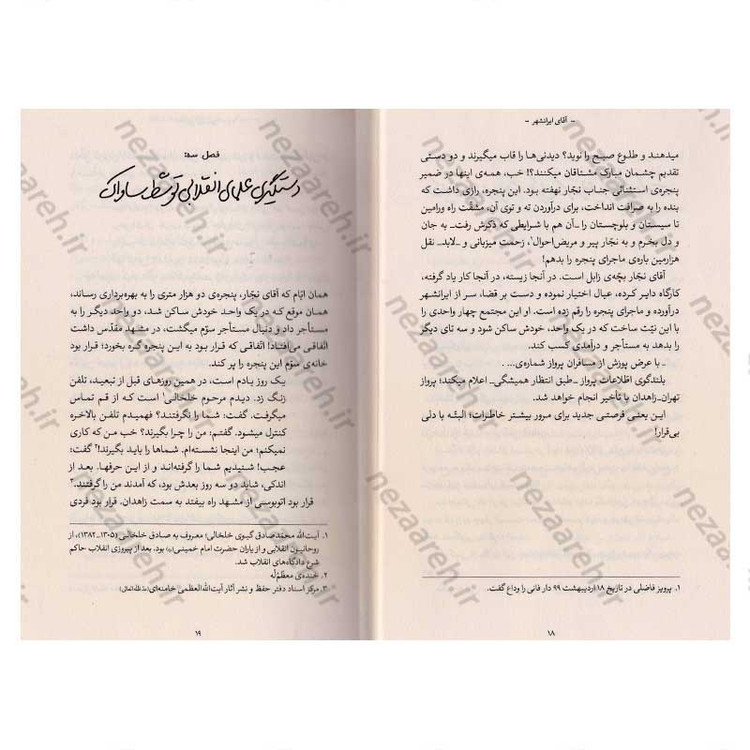 - آقای ایرانشهر -
میدهند و طلوع صبح را نوید؟ دیدنی‌ها را قاب میگیرند و دو دستی
تقدیم چشمان مبارک مشتاقان میکنند؟! خب، همه‌ی اینها در ضمیر
پنجره‌ی استثنائی جناب نجّار نهفته بود. این پنجره، رازی داشت که
بنده را به صرافت انداخت، برای درآوردن ته و توی آن، مشقّت راه ورامین
تا سیستان و بلوچستان را آن هم با شرایطی که ذکرش رفت- به جان
و دل بخرم و به نجّار پیر و مریض‌احوال۱، زحمت میزبانی و -لابد- نقل
هزارمین باره‌ی ماجرای پنجره را بدهم!
آقای نجّار بچّه‌ی زابل است. در آنجا زیسته، در آنجا کار یاد گرفته،
کارگاه دایر کرده، عیال اختیار نموده و دست بر قضا، سر از ایرانشهر
درآورده و ماجرای پنجره را رقم زده است. او این مجتمع چهار واحدی را
با این نیّت ساخت که در یک واحد، خودش ساکن شود و سه تای دیگر
را بدهد به مستأجر و درآمدی کسب کند.
ـ با عرض پوزش از مسافران پرواز شماره‌ی... .
بلندگوی اطّلاعات پرواز ـ طبق انتظار همیشگی ـ اعلام میکند؛ پرواز
تهران-زاهدان با تأخیر انجام خواهد شد.
این یعنی فرصتی جدید برای مرور بیشتر خاطرات؛ البتّه با دلی
بی‌قرار!
۱. پرویز فاضلی در تاریخ ۱۸ اردیبهشت ۹۹ دار فانی را وداع گفت.
۱۸
فصل سه:
دستگیری علمای انقلابی توسّط ساواک
همان ایّام که آقای نجّار، پنجره‌ی دو هزار متری را به بهره‌برداری رساند،
همان موقع که در یک واحد خودش ساکن شد، دو واحد دیگر را به
مستأجر داد و دنبال مستأجر سوّم میگشت، در مشهد مقدّس داشت
اتّفاقی می‌افتاد! اتّفاقی که قرار بود به این پنجره گره بخورد؛ قرار بود
خانه‌ی سوّم این پنجره را پر کند.
یک روز یادم است، در همین روزهای قبل از تبعید، تلفن
زنگ زد. دیدم مرحوم خلخالی۱ است که از قم تماس
میگرفت. گفت: شما را نگرفتند؟ فهمیدم تلفن بالاخره
کنترل میشود. گفتم: من را چرا بگیرند؟ خب من که کاری
نمیکنم؛ من اینجا نشسته‌ام. شماها را باید بگیرند!۲ گفت:
عجب! شنیدیم شما را گرفته‌اند و از این حرفها. بعد از
اندکی، شاید دو سه روز بعدش بود، که آمدند من را گرفتند.۳
قرار بود اتوبوسی از مشهد راه بیفتد به سمت زاهدان. قرار بود فردی
۱. آیت‌الله محمّدصادق گیوی خلخالی؛ معروف به صادق خلخالی (۱۳۰۵-۱۳۸۲)، از
روحانیون انقلابی و از یاران حضرت امام خمینی(ره) بود. بعد از پیروزی انقلاب حاکم
شرع دادگاه‌های انقلاب شد.
۲. خنده‌ی معظّم‌له
۳. مرکز اسناد دفتر حفظ و نشر آثار آیت‌الله‌العظمی خامنه‌ای(مدّظلّه‌العالی)
۱۹
nezaareh.ir